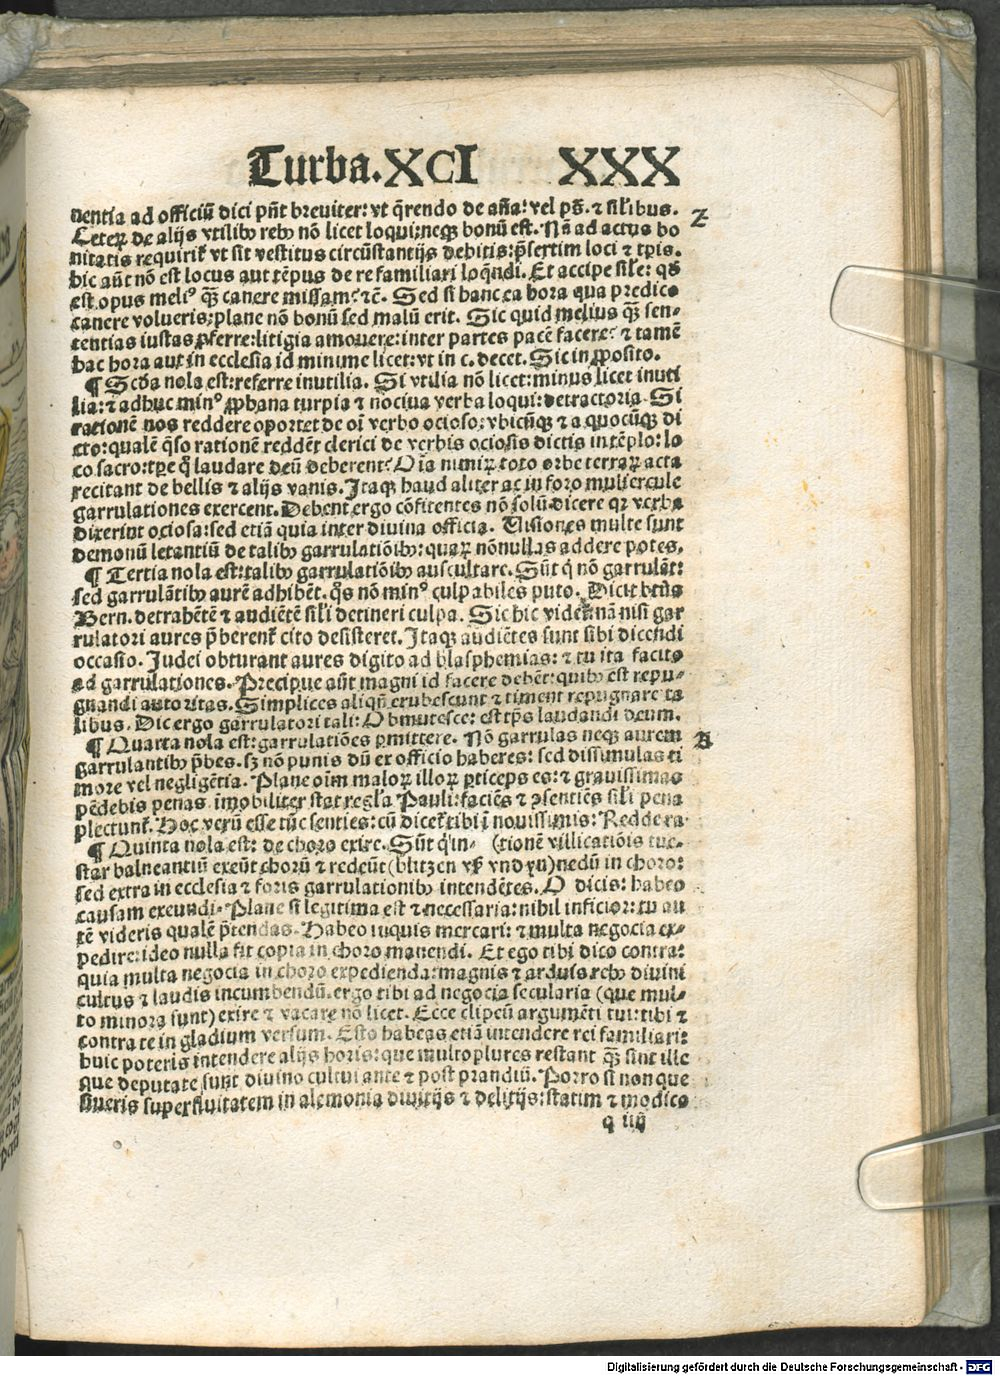 Turba. XCI XXX
nentia ad officiū dici pn̄t breuiter: vt q̄rendo de añā: vel ps̄. ⁊ sil'ibus. Z
Ceteꝝ de alijs vtilibꝰ rebꝰ nō licet loqui: neqꝫ bonū est. Nā ad actus bo
nitatis requirit᷑ vt sit vestitus circūstantijs debitis: p̄sertim loci ⁊ tp̄is.
hic aūt nō est locus aut tēpus de re familiari loq̄ndi. Et accipe sil'e: qđ
est opus meliꝰ qꝫ̄ canere missam? ⁊c̄. Sed si hanc ea hora qua predico
canere volueris: plane nō bonū sed malū erit. Sic quid melius qꝫ̄ sen-
tentias iustas ꝓferre: litigia amouere: inter partes pacē facere? ⁊ tamē
hac hora aut in ecclesia id minime licet: vt in c. decet. Sic in ꝓposito.
¶ Scđa nola est: referre inutilia. Si vtilia nō licet: minus licet inuti
lia: ⁊ adhuc minꝰ ꝓphana turpia ⁊ nociua verba loqui: detractoria. Si
rationē nos reddere oportet de oī verbo ocioso: vbicūqꝫ ⁊ a quocūqꝫ di
cto: qualē q̄so rationē reddēt clerici de verbis ociosis dictis in tēplo: lo
co sacro: tp̄e q̄ laudare deū deberent? Oīa nimiꝝ toto orbe terraꝝ acta
recitant de bellis ⁊ alijs vanis. Itaqꝫ haud aliter ac in foro muliercule
garrulationes exercent. Debent ergo cōfitentes nō solū dicere qꝛ verba
dixerint ociosa: sed etiā quia inter diuina officia. Uisiones multe sunt
demonū letantiū de talibꝰ garrulatiōibꝰ: quaꝝ nōnullas addere potes.
¶ Tertia nola est: talibꝰ garrulatiōibꝰ auscultare. Sūt q̇ nō garrulāt:
sed garrulātibꝰ aurē adhibēt. q̄s nō minꝰ culpabiles puto. Dicit btūs
Bern. detrahētē ⁊ audiētē sil'i detineri culpa. Sic hic videt᷑. nā nisi gar
rulatori aures p̄berent᷑ cito desisteret. Itaqꝫ audiētes sunt sibi dicēdi
occasio. Judei obturant aures digito ad blasphemias: ⁊ tu ita facito
ad garrulationes. Precipue aūt magni id facere debēt: quibꝰ est repu-
gnandi autoritas. Simplices aliqn̄ erubescunt ⁊ timent repugnare ta
libus. Dic ergo garrulatori tali: Obmutesce: est tp̄s laudandi deum.
¶ Quarta nola est: garrulatiōes ꝑmittere. Nō garrulas neqꝫ aurem
garrulantibꝰ p̄bes. sꝫ nō punis dū ex officio haberes: sed dissimulas ti
more vel negligētia. Plane oīm maloꝝ illoꝝ ꝑticeps es: ⁊ grauissimas
pēdebis penas. imobiliter stat regl'a Pauli: faciēs ⁊ ꝯsentiēs sil'i pena
plectunt᷑. Hoc verū esse tūc senties: cū dicet᷑ tibi ī nouissimis: Redde ra
¶ Quinta nola est: de choro exire. Sūt q̇ in- (tionē villicatiōis tue.
star balneantiū exeūt chorū ⁊ redeūt (blitzen vß vnd yn) nedū in choro:
sed extra in ecclesia ⁊ foris garrulationibꝰ intendētes. O dicis: habeo
causam exeundi. Plane si legitima est ⁊ necessaria: nihil inficior: tu au
tē videris qualē p̄tendas. Habeo inquis mercari: ⁊ multa negocia ex-
pedire: ideo nulla fit copia in choro manendi. Et ego tibi dico contra:
quia multa negocia in choro expedienda: magnis ⁊ arduis rebꝰ diuini
cultus ⁊ laudis incumbendū. ergo tibi ad negocia secularia (que mul-
to minora sunt) exire ⁊ vacare nō licet. Ecce clipeū argumēti tui: tibi ⁊
contra te in gladium versum. Esto habeas etiā intendere rei familiari:
huic poteris intendere alijs horis: que multo plures restant qꝫ̄ sint ille
que deputate sunt diuino cultui ante ⁊ post prandiū. Porro si non que
siueris superfluitatem in alemonia diuitijs ⁊ delitijs: statim ⁊ modico
q iiij
Digitalisierung gefördert durch die Deutsche Forschungsgemeinschaft - DFG